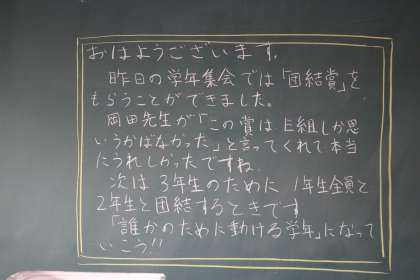 おはようございます。
昨日の学年集会では「団結賞」を
もらうことができました。
岡田先生が「この賞はE組しか思
いうかばなかった」と言ってくれて本当
にうれしかったですね。
次は3年生のために1年生全員と
2年生と団結するときです
「誰かのために動ける学年」になって
いこう!!